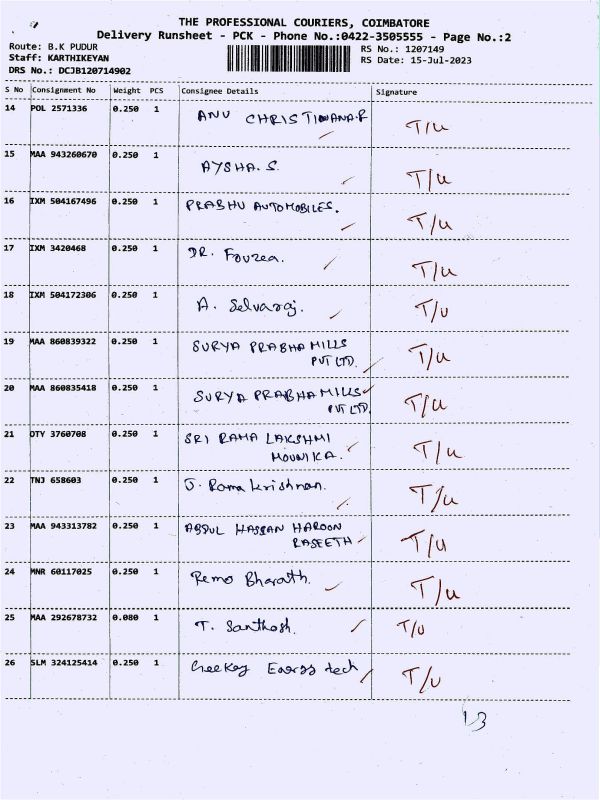 THE PROFESSIONAL COURIERS, COIMBATORE
Delivery Runsheet - PCK - Phone No.:0422-3505555 - Page No.:2
Route: B.K PUDUR
RS No.: 1207149
Staff: KARTHIKEYAN
RS Date: 15-Jul-2023
DRS No.: DCJB120714902
S No Consignment No Weight PCS Consignee Details Signature
14 POL 2571336 0.250 1 ANU CHRISTIANA.R T/U
15 MAA 943260670 0.250 1 AYSHA.S T/U
16 IXM 504167496 0.250 1 PRABHU AUTOMOBILES. T/U
17 IXM 3420468 0.250 1 DR. Fouzea. T/U
18 IXM 504172306 0.250 1 A. Selvaraj. T/U
19 MAA 860839322 0.250 1 SURYA PRABHA MILLS T/U
PVT LTD.
20 MAA 860835418 0.250 1 SURYA PRABHA MILLS T/U
PVT LTD.
21 OTY 3760708 0.250 1 SRI RAMA LAKSHMI T/U
MOUNIKA.
22 TNJ 658603 0.250 1 J. Rama krishnan. T/U
23 MAA 943313782 0.250 1 ABDUL HASSAN HAROON T/U
RASEETH
24 MNR 60117025 0.250 1 Remo Bharath. T/U
25 MAA 292678732 0.080 1 T. Santhosh. T/U
26 SLM 324125414 0.250 1 Energy tech T/U
13